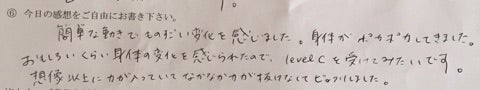 ⑥ 今日の感想をご自由にお書き下さい。
簡単な動きでものすごい変化を感じました。身体がポカポカしてきました。
おもしろいくらい身体の変化を感じられたので、level C を受けてみたいです。
想像以上に力が入っていてなかなか力が抜けなくてビックリしました。